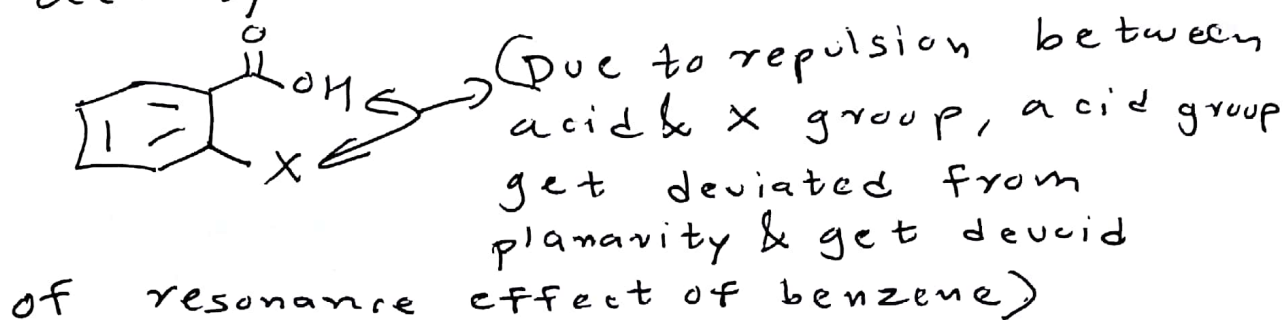 O
OH
X
(Due to repulsion between
acid & X group, acid group
get deviated from
planarity & get devoid
of resonance effect of benzene)